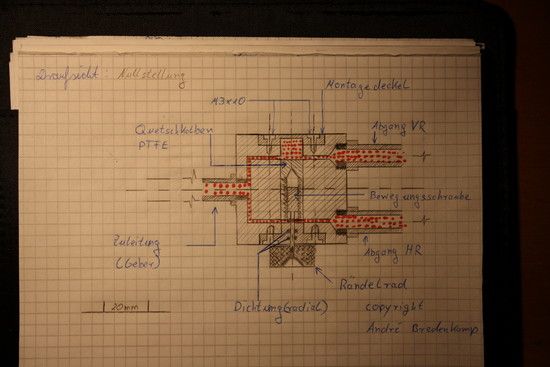 Draufsicht: Nullstellung
Montagedeckel
M3x10
Quetschkolben
PTFE
Abgang VR
Bewegungsschraube
Zuleitung
(Geber)
Abgang HR
Rändelrad
20mm
Dichtung(radial)
copyright
André Bredenkamp